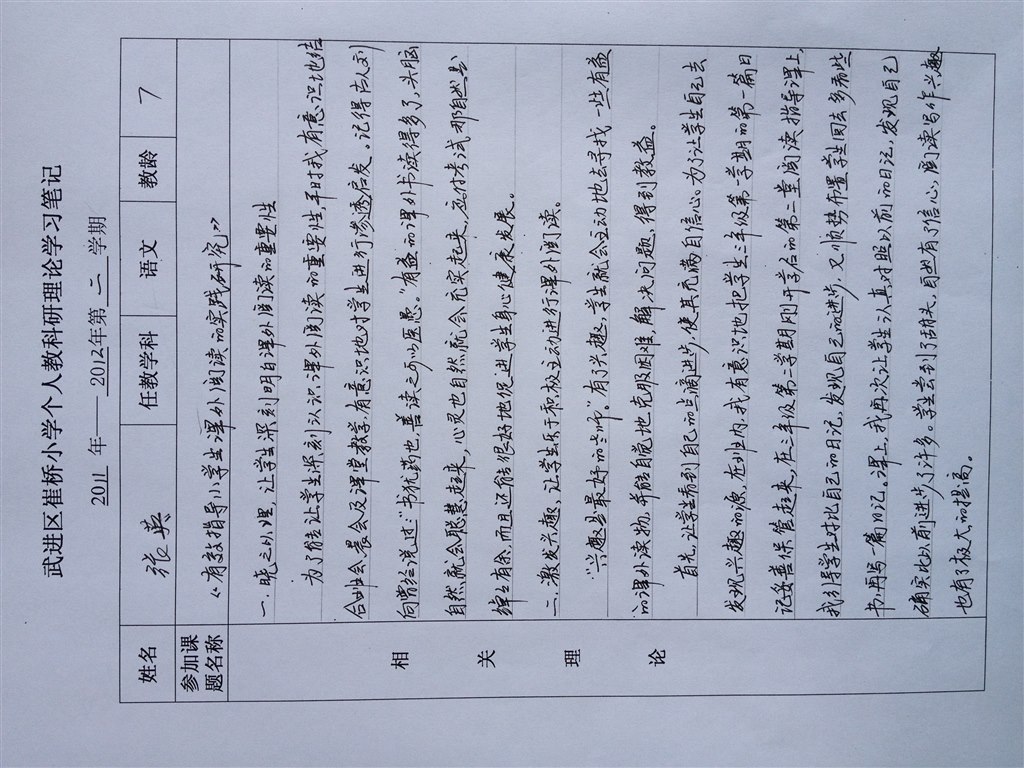 武进区崔桥小学个人教科研理论学习笔记
2011 年——2012年第 二 学期
姓名 张英 任教学科 语文 教龄 7
参加课题名称 《有教指导小学生课外阅读的实践研究》
相关理论
一.晓之以理,让学生深刻明白课外阅读的重要性
为了能让学生深刻认识课外阅读的重要性,平时我有意识地结
合班会晨会及课堂教学,有意识地对学生进行渗透启发。记得古人刘
向曾经说过:“书优药也,善读之可以医愚。”有益的课外书读得多了,头脑
自然就会聪慧起来,心灵也自然就会充实起来,应付考试那自然是
绰绰有余,而且还能很好地促进学生身心健康发展。
二.激发兴趣,让学生乐于和积极主动进行课外阅读。
“兴趣是最好的老师”。有了兴趣,学生就会主动地去寻找一些有益
的课外读物,并能自觉地克服困难,解决问题,得到教益。
首先,让学生看到自己的点滴进步,使其充满自信心。为了让学生自己去
发现兴趣的源,在班内,我有意识地把学生三年级第一学期的第一篇日
记妥善保管起来,在三年级第二学期刚开学后的第二堂阅读指导课上,
我引导学生对比自己的日记,发现自己的进步,又顺势布置学生回去多看些
书,再写一篇日记。课上,我再次让学生认真对照以前的日记,发现自己
确实比以前进步了许多。学生尝到了甜头,自然有了信心,阅读写作兴趣
也有了极大的提高。